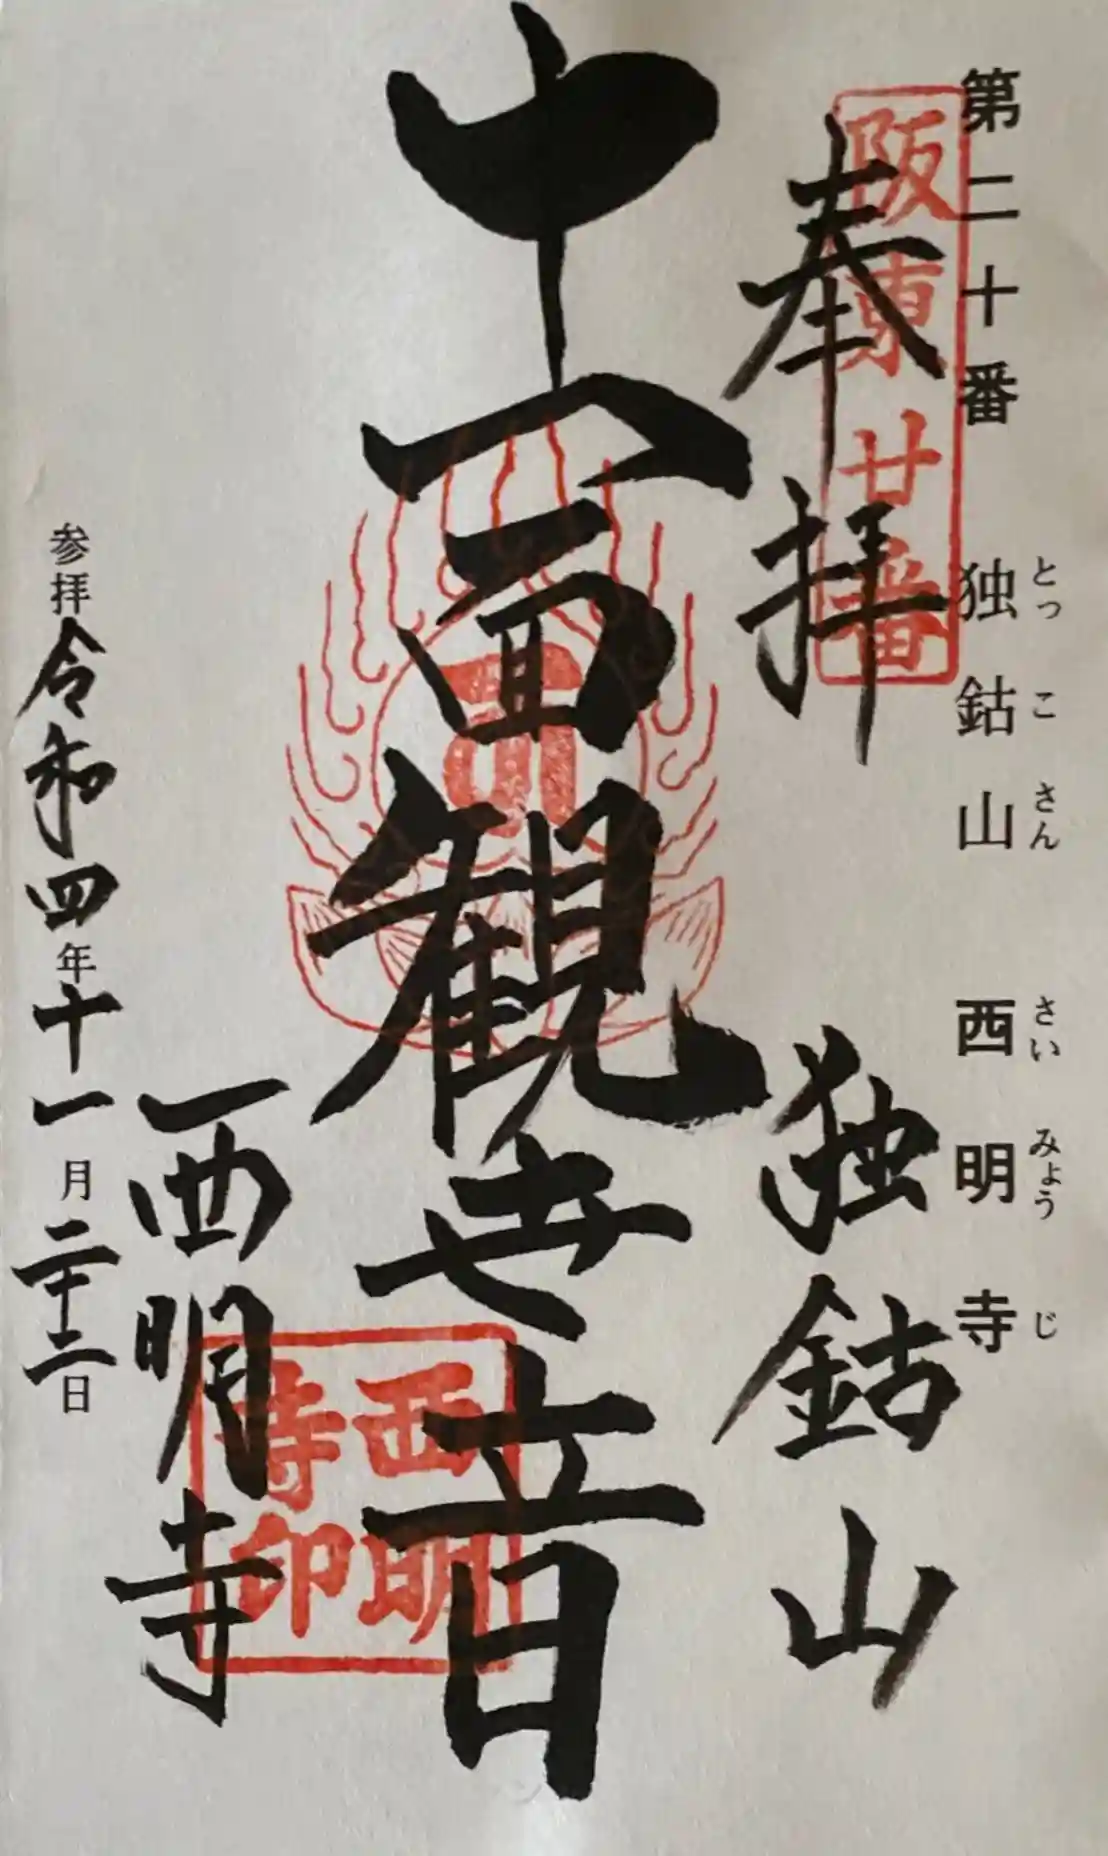 第二十番 独鈷山 西明寺
とっこさん さいみょうじ
阪東廿番
奉拝 独鈷山
十一面観世音
西明寺
西明
寺印
参拝令和四年十一月二十二日